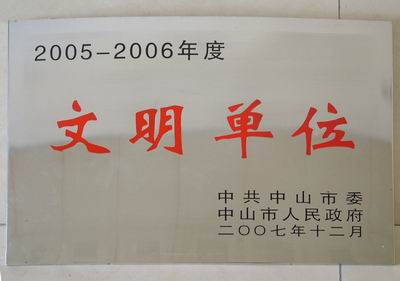 2005-2006年度
文明单位
中共中山市委
中山市人民政府
二〇〇七年十二月